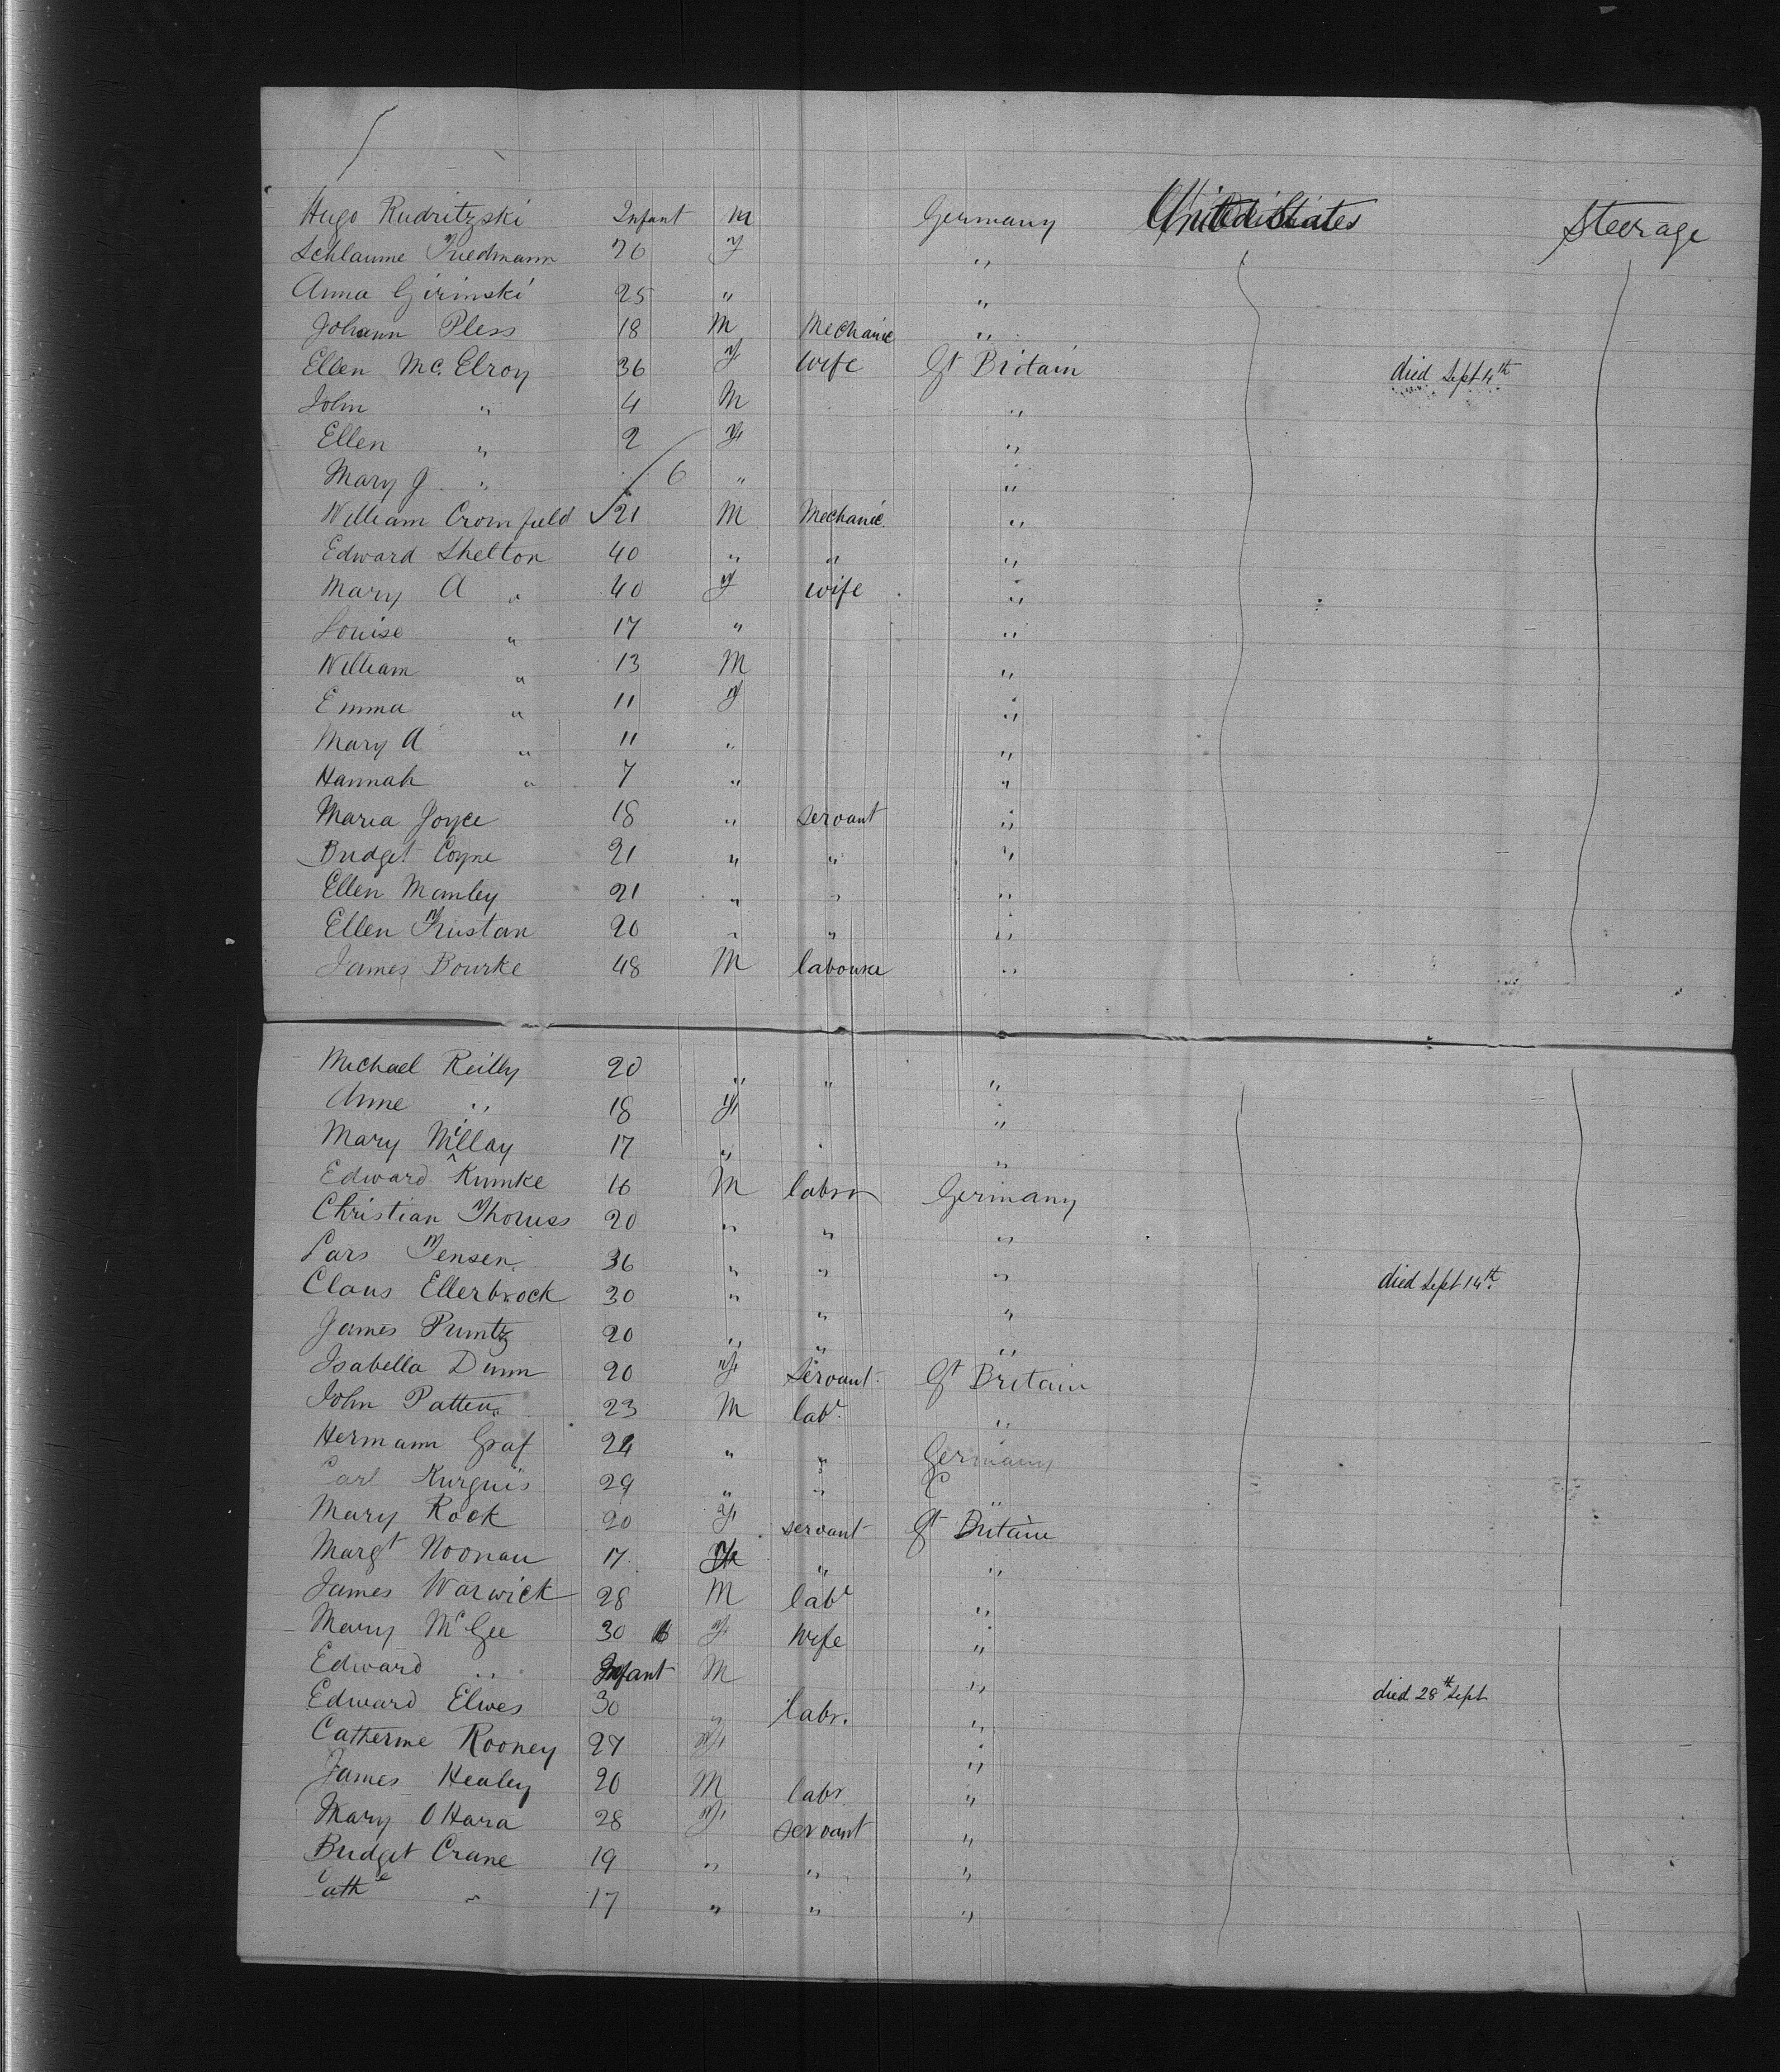 Hugo Rudritzski Infant M Germany United States Steerage
Schlaume Friedmann 26 F "
Anna Girinski 25 " "
Johann Pless 18 M Mechanic "
Ellen Mc. Elroy 36 F wife Gt Britain died Sept 4th
John " 4 M "
Ellen " 2 F "
Mary J. " / 6 " "
William Cromfield √21 M Mechanic "
Edward Shelton 40 " " "
Mary A " 40 F wife "
Louise " 17 " "
William " 13 M "
Emma " 11 F "
Mary A " 11 " "
Hannah " 7 " "
Maria Joyce 18 " servant "
Bridget Coyne 21 " " "
Ellen Manley 21 " " "
Ellen Tristan 20 " " "
James Bourke 48 M laboure "
Michael Reilly 20 " " "
Anne " 18 F "
Mary Millay 17 " "
Edward Kumke 16 M labor Germany
Christian 20 " " "
Lars Jensen 36 " " "
Claus Ellerbrock 30 " " " died Sept 14th
James Puntz 20 " " "
Isabella Dunn 20 F Servant Gt Britain
John Patten 23 M labr "
Hermann Graf 24 " " Germany
Carl Kurguis 29 " " "
Mary Rock 20 F servant Gt Britain
Margt Noonan 17 F " "
James Warwick 28 M labr "
Mary McGee 30 F Wife "
Edward " Infant M "
Edward Elwes 30 " labr. " died 28th Sept
Catherine Rooney 27 F "
James Healey 20 M labr "
Mary O Hara 28 F servant "
Bridget Crane 19 " " "
Cathe " 17 " " "